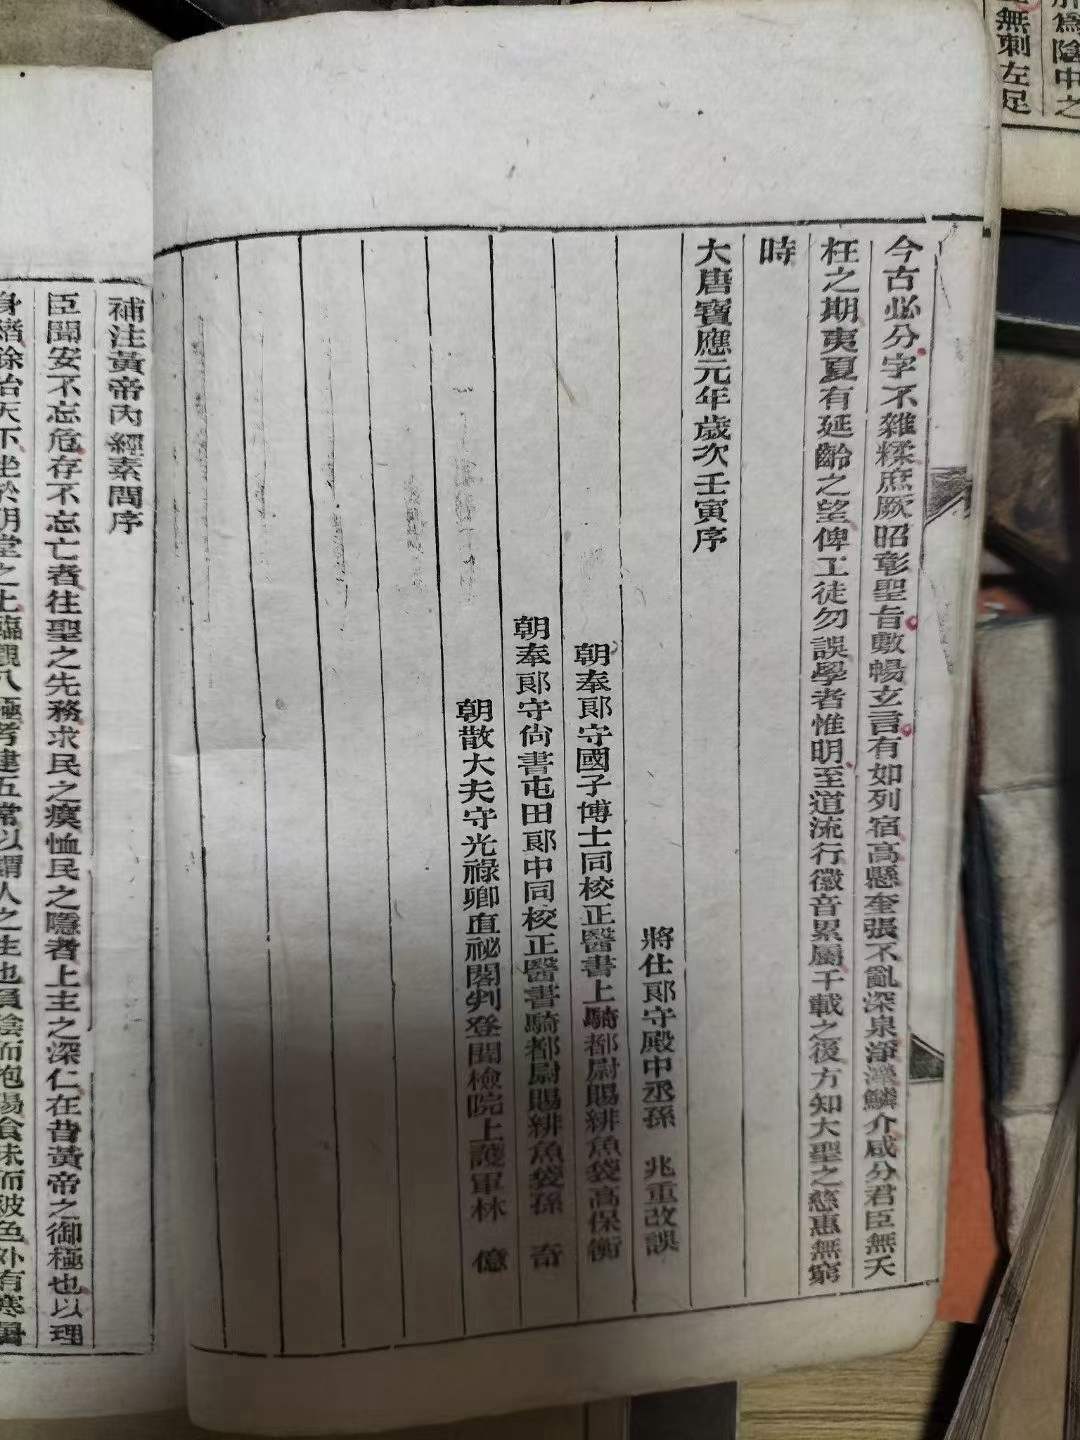 肝爲陰中之
無刺左足
今古必分字不雜糅庶厥昭彰聖旨敷暢玄言有如列宿高懸奎張不亂深泉淨瀅鱗介咸分君臣無夭
枉之期夷夏有延齡之望俾工徒勿誤學者惟明至道流行徽音累屬千載之後方知大聖之慈惠無窮
時
大唐寶應元年歲次壬寅序
將仕郎守殿中丞孫 兆重改誤
朝奉郎守國子博士同校正醫書上騎都尉賜緋魚袋高保衡
朝奉郎守尚書屯田郎中同校正醫書騎都尉賜緋魚袋孫 奇
朝散大夫守光祿卿直祕閣判登聞檢院上護軍林 億
補注黃帝內經素問序
臣聞安不忘危存不忘亡者往聖之先務求民之瘼恤民之隱者上主之深仁在昔黃帝之御極也以理
身緒餘治天下坐於明堂之上臨觀八極考建五常以謂人之生也負陰而抱陽食味而被色外有寒暑